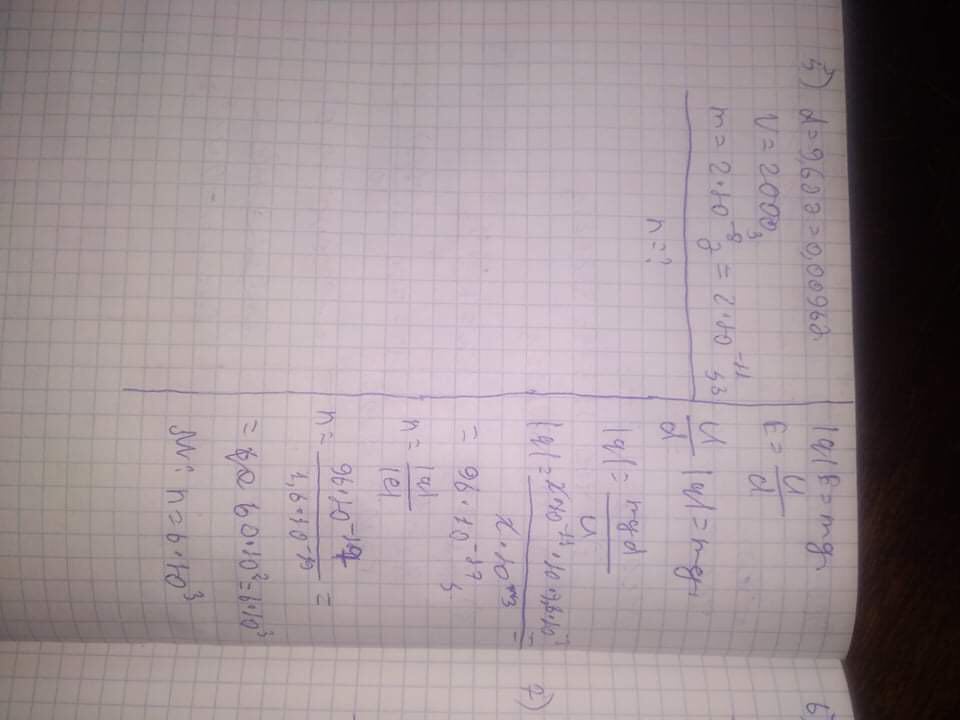 5) d=9,6սմ=0,0096մ
U = 2000վ
m = 2·10⁻⁸գ = 2·10⁻¹¹ կգ
n=?
|q|E=mg
E = U/d
U/d |q|=mg
|q|= mgd/U
|q|= 2·10⁻¹¹·10·9,6·10⁻³ / 2·10³ =
= 96·10⁻¹⁷
n= |q|/|e|
n= 96·10⁻¹⁷ / 1,6·10⁻¹⁹ =
= 60·10²=6·10³
n=6·10³